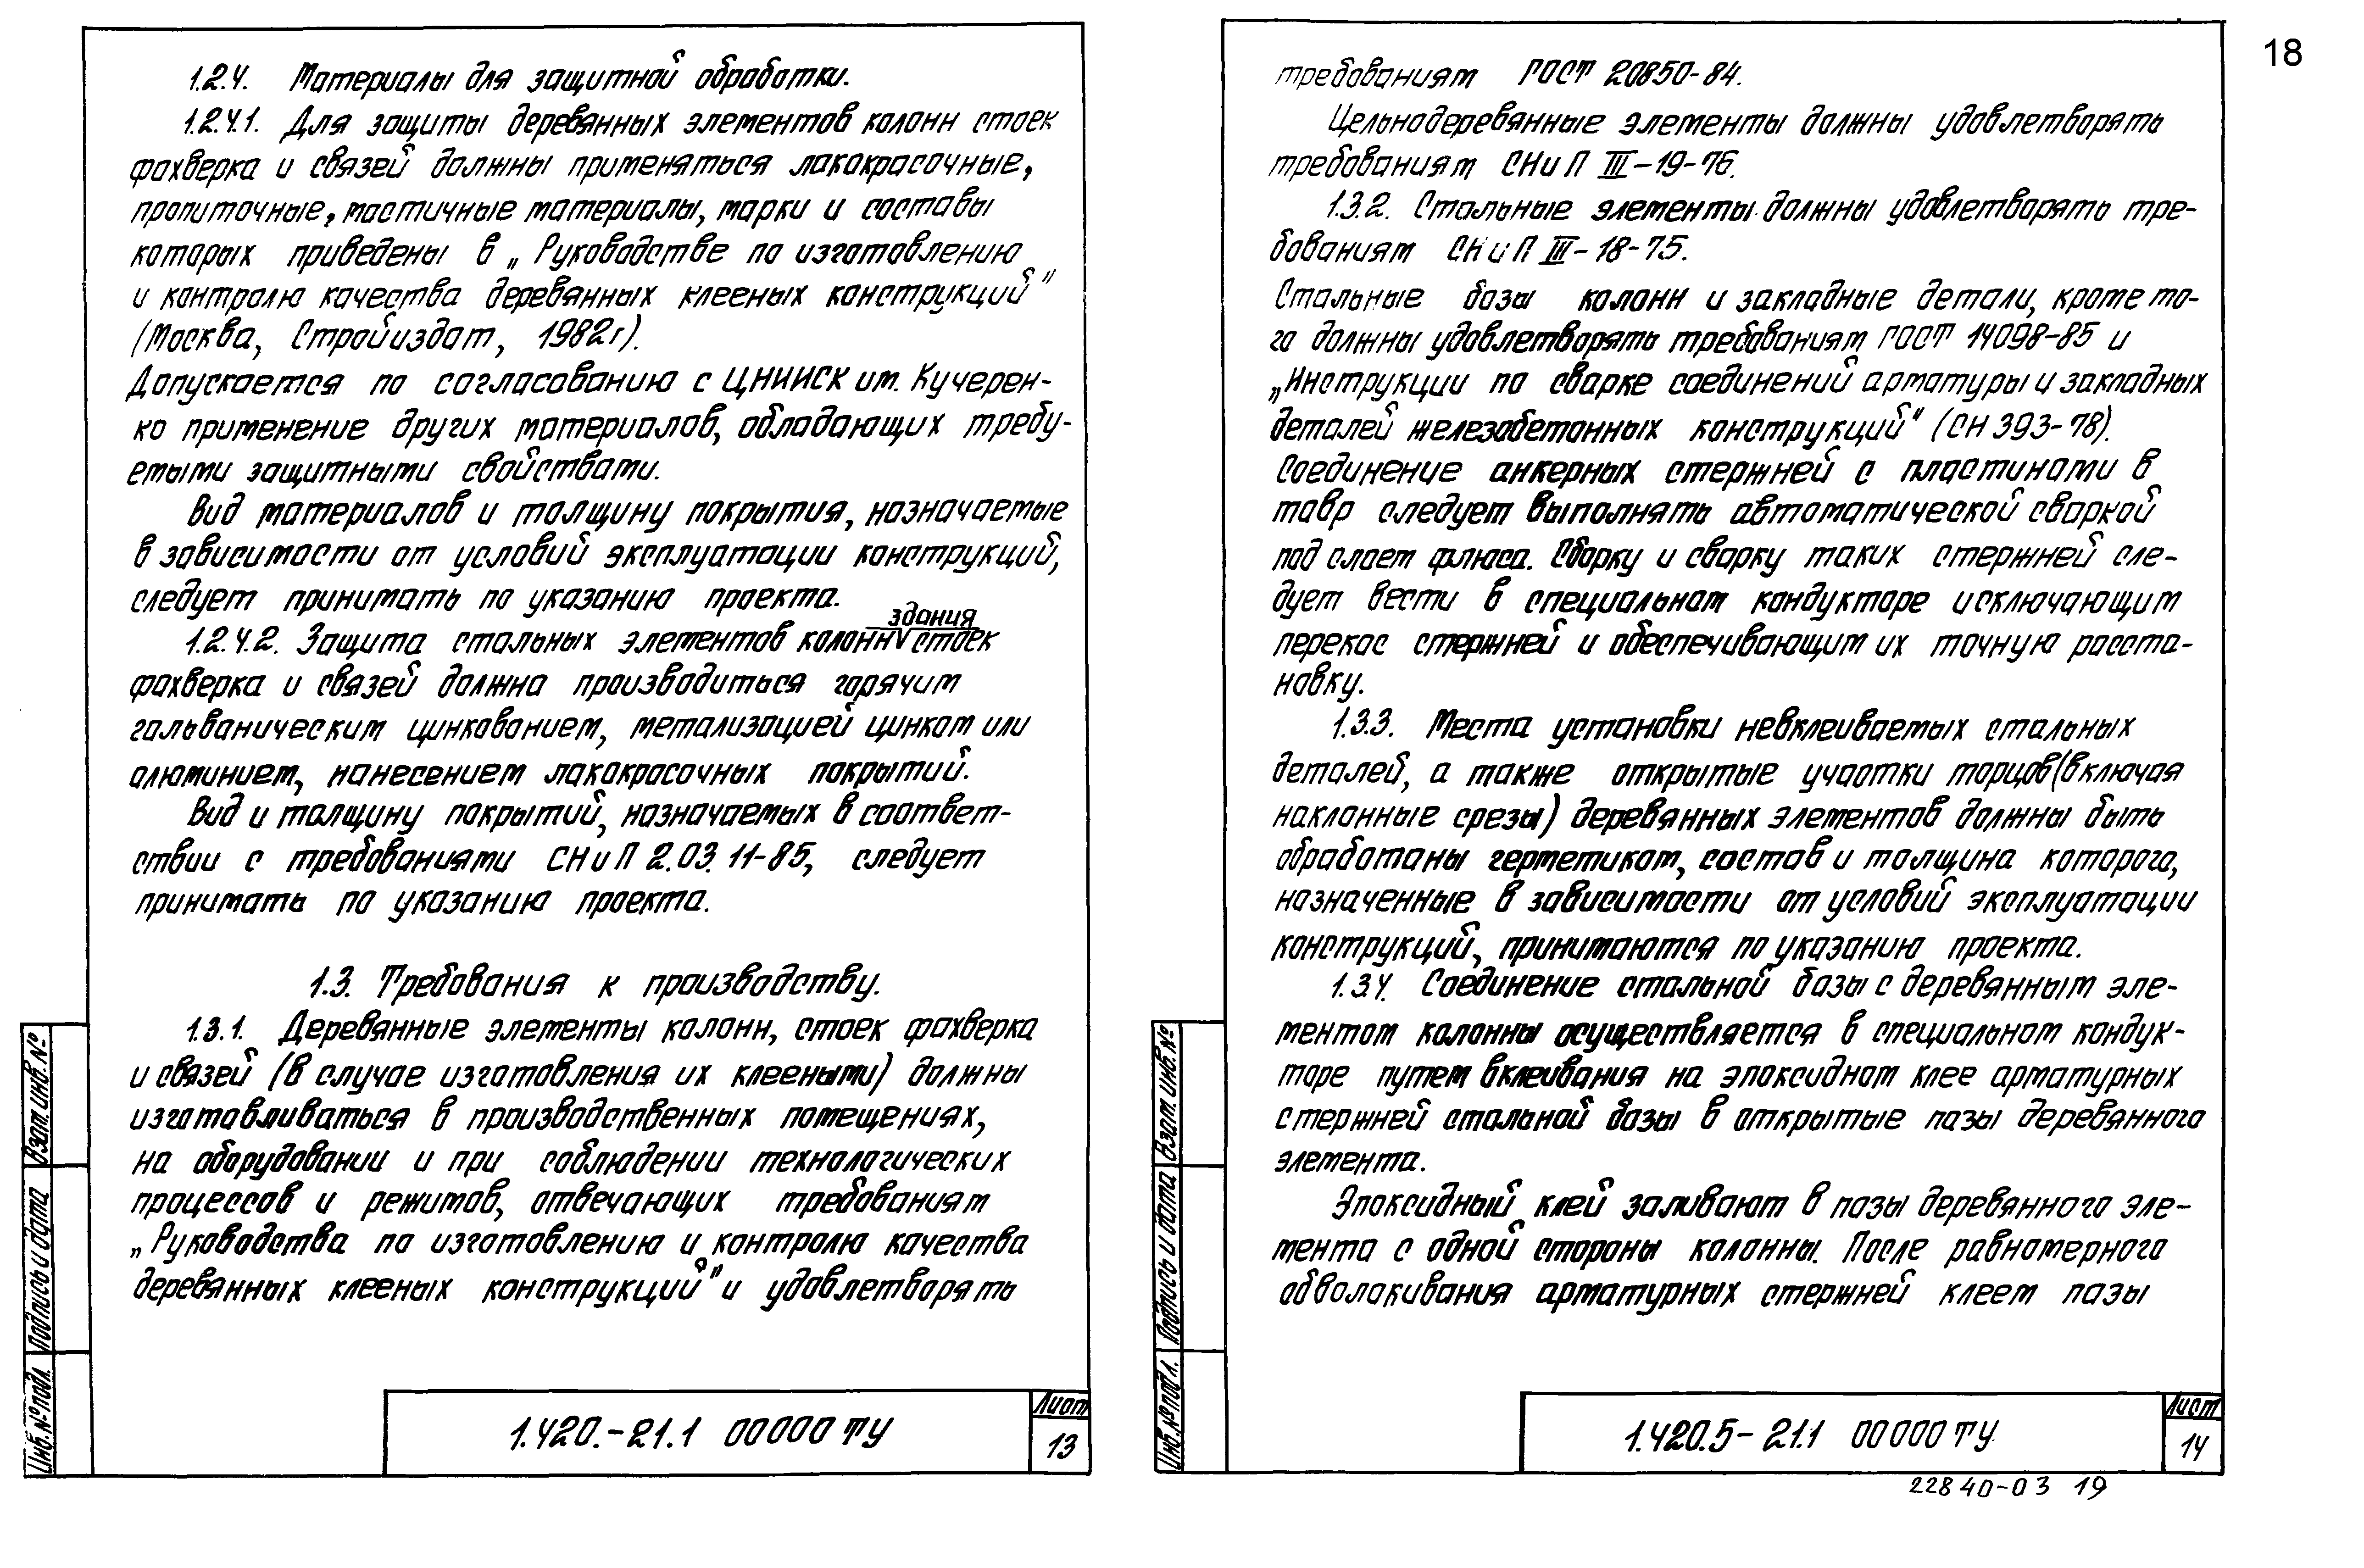 1.2.4. Материалы для защитной обработки.
1.2.4.1. Для защиты деревянных элементов колонн стоек
фахверка и связей должны применяться лакокрасочные,
пропиточные, мастичные материалы, марки и составы
которых приведены в „Руководстве по изготовлению
и контролю качества деревянных клееных конструкций"
(Москва, Стройиздат, 1982г).
Допускается по согласованию с ЦНИИСК им. Кучерен-
ко применение других материалов, обладающих требу-
емыми защитными свойствами.
Вид материалов и толщину покрытия, назначаемые
в зависимости от условий эксплуатации конструкций,
следует принимать по указанию проекта.
здания
1.2.4.2. Защита стальных элементов колонн√стоек
фахверка и связей должна производиться горячим
гальваническим цинкованием, метализацией цинком или
алюминием, нанесением лакокрасочных покрытий.
Вид и толщину покрытий, назначаемых в соответ-
ствии с требованиями СНиП 2.03.11-85, следует
принимать по указанию проекта.
1.3. Требования к производству.
1.3.1. Деревянные элементы колонн, стоек фахверка
и связей (в случае изготовления их клееными) должны
изготавливаться в производственных помещениях,
на оборудовании и при соблюдении технологических
процессов и режимов, отвечающих требованиям
„Руководства по изготовлению и контролю качества
деревянных клееных конструкций" и удовлетворять
Взам. инв. №
Подпись и дата
Инв. № подл.
1.420.-21.1 00000 ТУ
Лист
13
18
требованиям ГОСТ 20850-84.
Цельнодеревянные элементы должны удовлетворять
требованиям СНиП III-19-76.
1.3.2. Стальные элементы должны удовлетворять тре-
бованиям СНиП III-18-75.
Стальные базы колонн и закладные детали, кроме то-
го должны удовлетворять требованиям ГОСТ 14098-85 и
„Инструкции по сварке соединений арматуры и закладных
деталей железобетонных конструкций" (СН 393-78).
Соединение анкерных стержней с пластинами в
тавр следует выполнять автоматической сваркой
под слоем флюса. Сборку и сварку таких стержней сле-
дует вести в специальном кондукторе исключающим
перекос стержней и обеспечивающим их точную расста-
новку.
1.3.3. Места установки невклеиваемых стальных
деталей, а также открытые участки торцов (включая
наклонные срезы) деревянных элементов должны быть
обработаны герметиком, состав и толщина которого,
назначенные в зависимости от условий эксплуатации
конструкций, принимаются по указанию проекта.
1.3.4. Соединение стальной базы с деревянным эле-
ментом колонны осуществляется в специальном кондук-
торе путем вклеивания на эпоксидном клее арматурных
стержней стальной базы в открытые пазы деревянного
элемента.
Эпоксидный клей заливают в пазы деревянного эле-
мента с одной стороны колонны. После равномерного
обволакивания арматурных стержней клеем пазы
Взам. инв. №
Подпись и дата
Инв. № подл.
1.420.5-21.1 00000 ТУ
Лист
14
22840-03 19